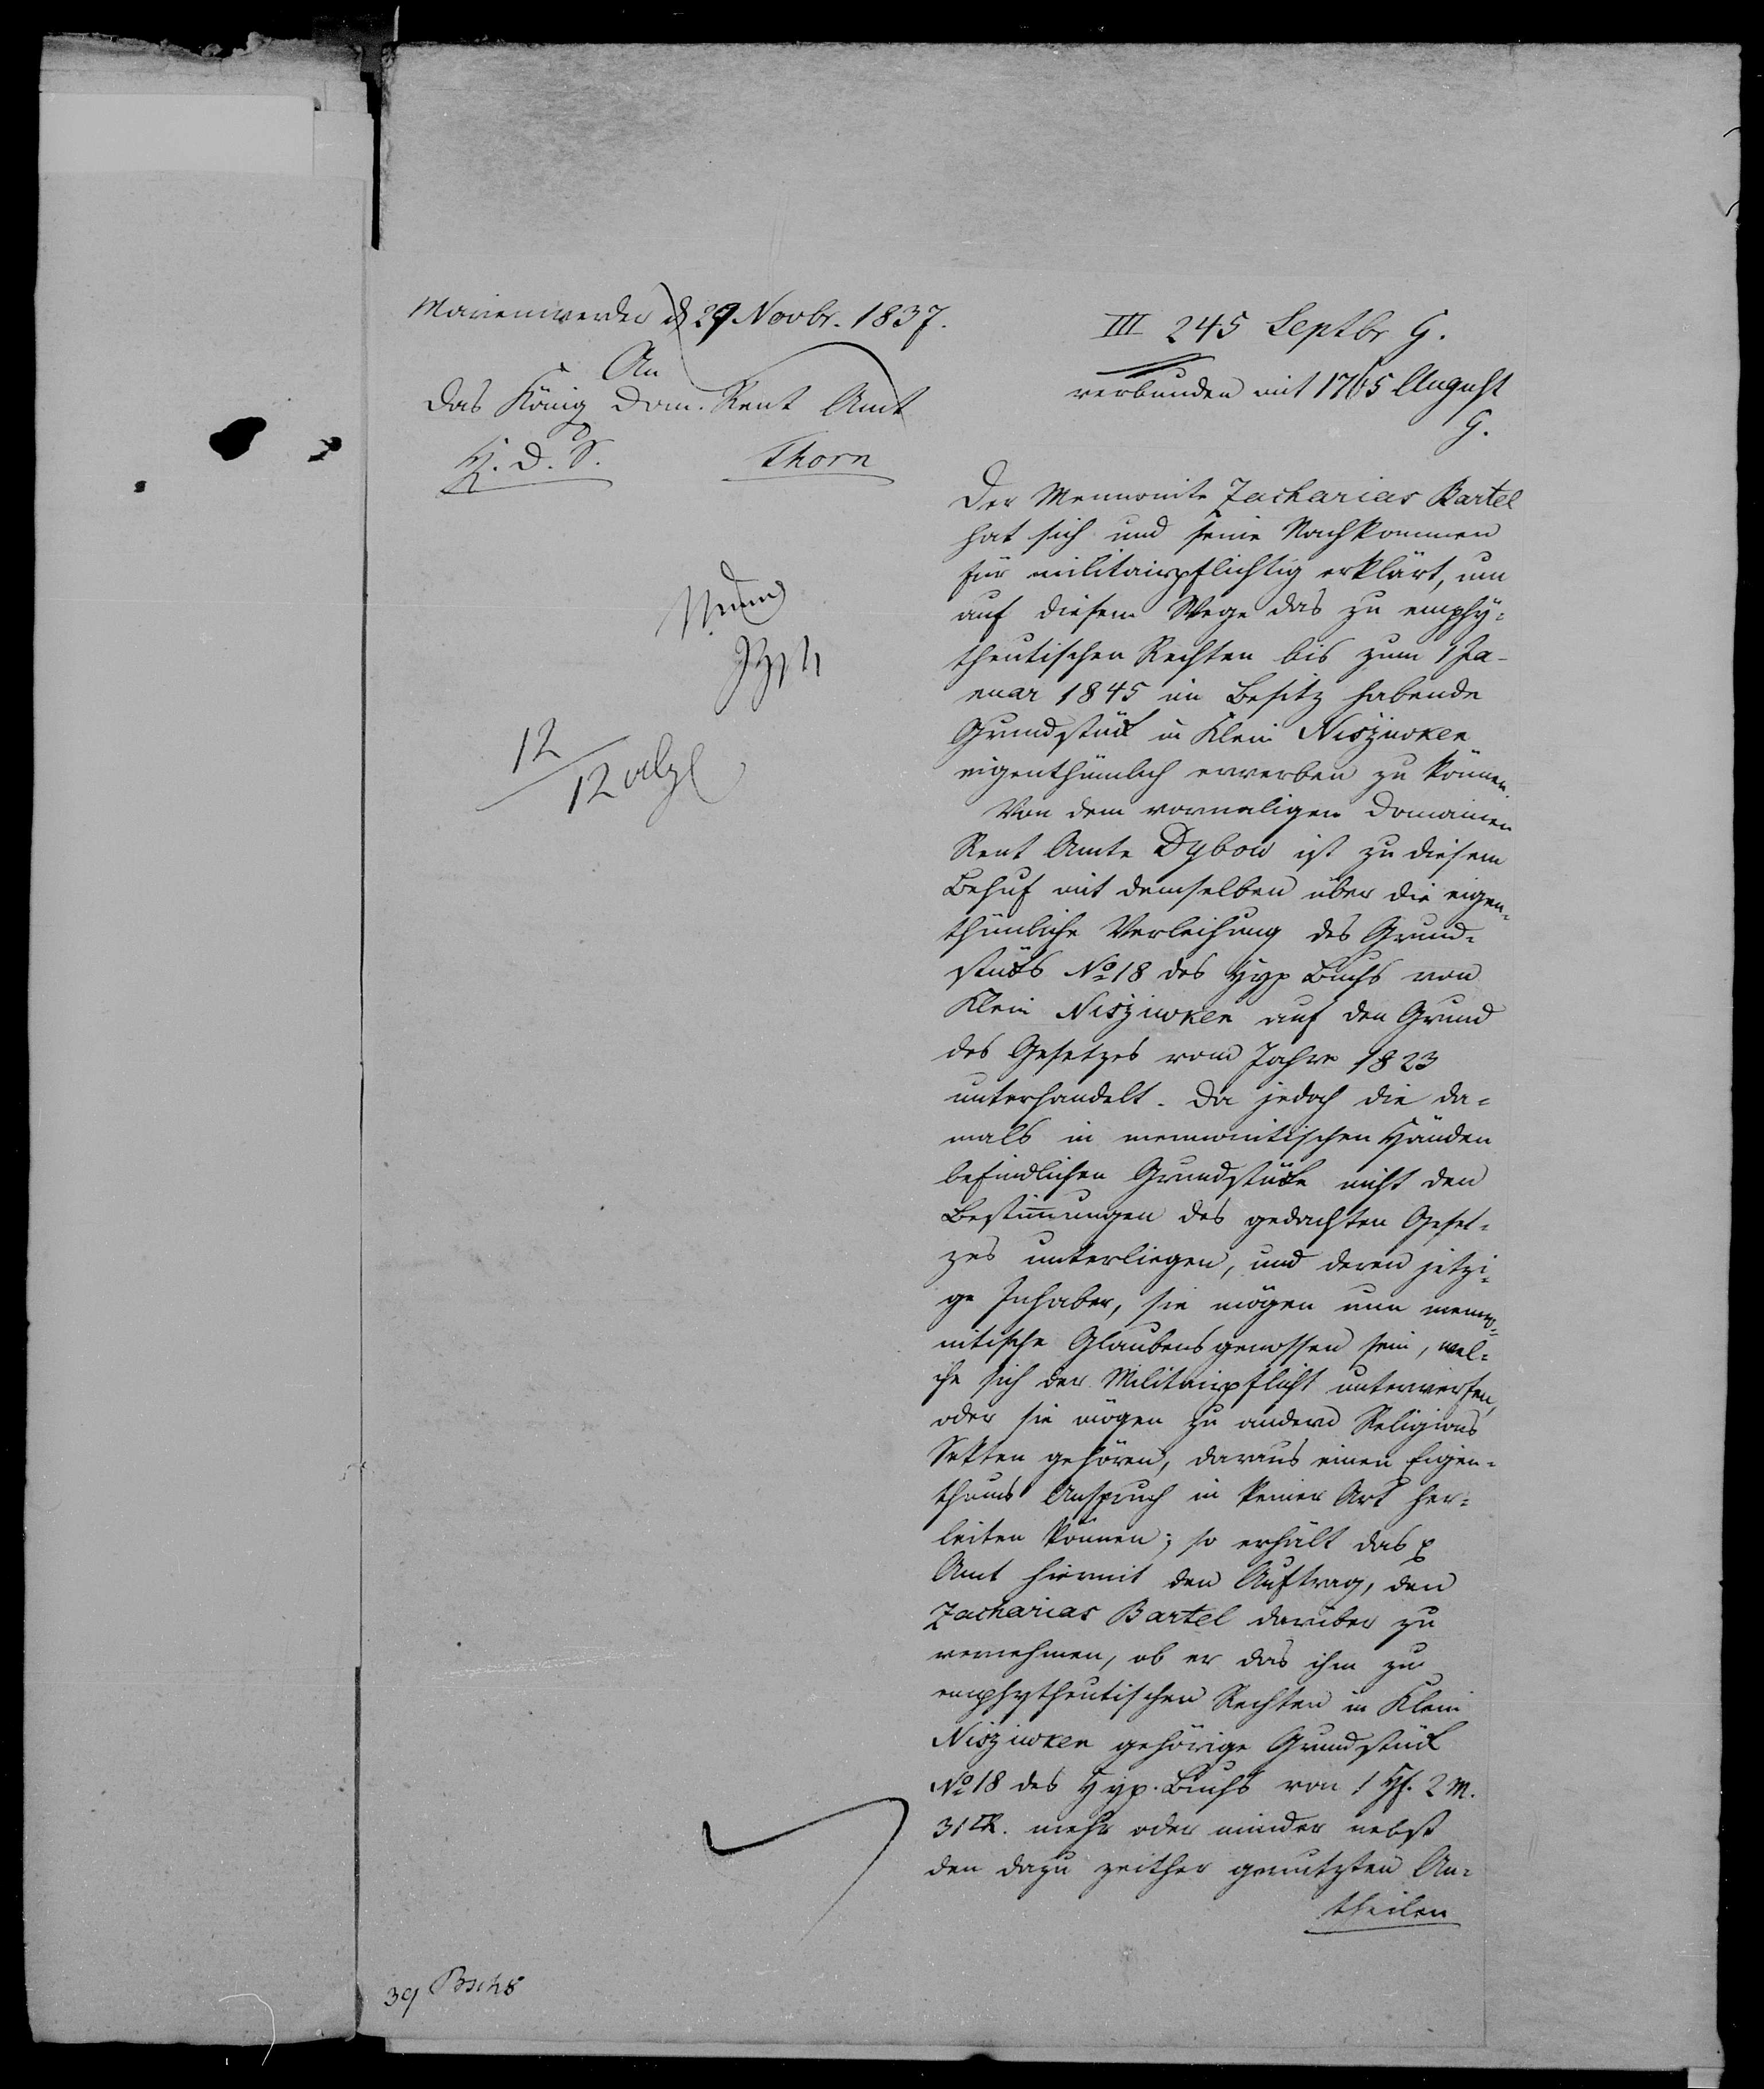 Marienwerder d 29 Novbr. 1837.
An
das König Dom. Rent Amt
Thorn
III 245 Septbr G.
verbunden mit 1765 August
G.
Der Mennonite Zacharias Bartel
hat sich und seine Nachkommen
für militairpflichtig erklärt, um
auf diesem Wege das zu emphy-
theutischen Rechten bis zum 1 Ja-
nuar 1845 im Besitz habende
Grundstück in Klein Niszewken
eigenthümlich erwerben zu können.
Von dem vormaligen Domainen
Rent Amte Dybow ist zu diesem
Behuf mit demselben über die eigen-
thümliche Verleihung des Grund-
stücks No 18 des Hyp Buchs von
Klein Niszewken auf den Grund
des Gesetzes vom Jahre 1823
unterhandelt. Da jedoch die da-
mals in mennonitischen Händen
befindlichen Grundstücke nicht den
Bestimmungen des gedachten Geset-
zes unterliegen, und deren jetzi-
ge Inhaber, sie mögen nun menno-
nitische Glaubensgenossen sein, wel-
che sich der Militairpflicht unterwerfen,
oder sie mögen zu andern Religions
Sekten gehören, daraus einen Eigen-
thums Anspruch in keiner Art her-
leiten können; so erhält das p
Amt hiermit den Auftrag, den
Zacharias Bartel darüber zu
vernehmen, ob er das ihm zu
emphytheutischen Rechten in Klein
Niszewken gehörige Grundstück
No 18 des Hyp. Buchs von 1 Hf. 2 M.
31 □R. mehr oder minder nebst
den dazu zeither genutzten An-
theilen
12
12
39